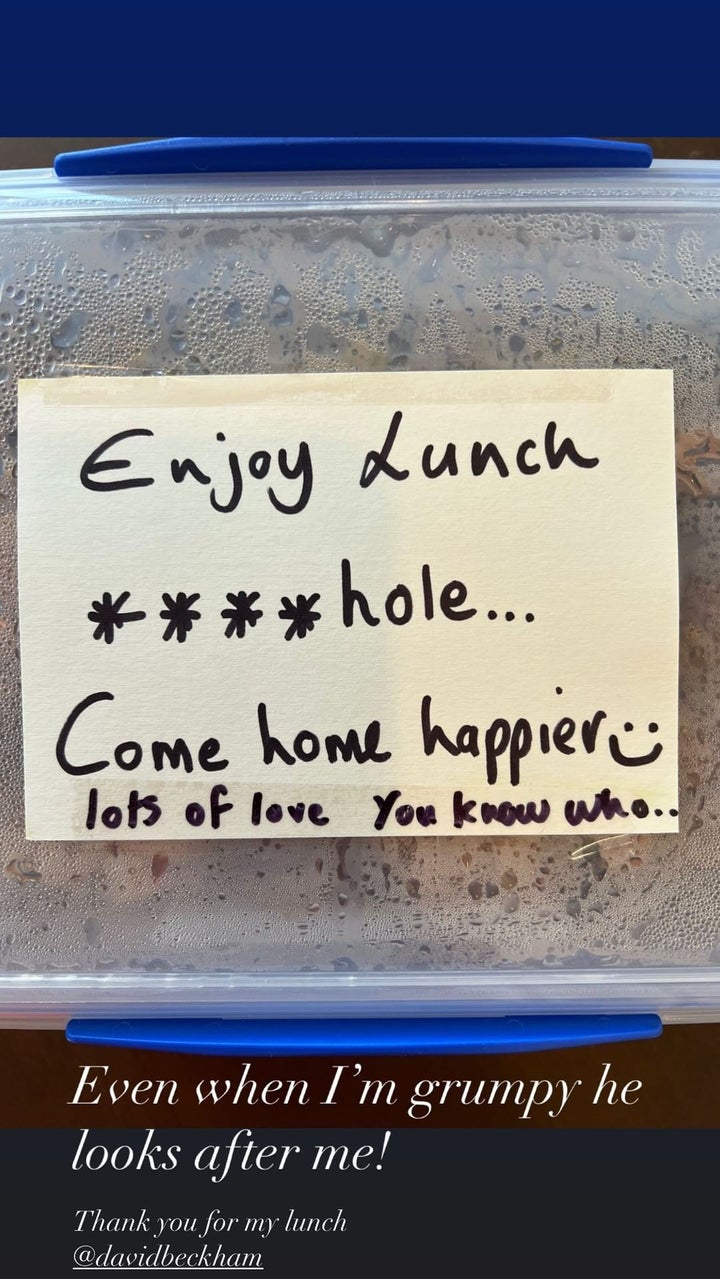 Enjoy Lunch
****hole...
Come home happier :)
lots of love You know who..
Even when I'm grumpy he
looks after me!
Thank you for my lunch
@davidbeckham